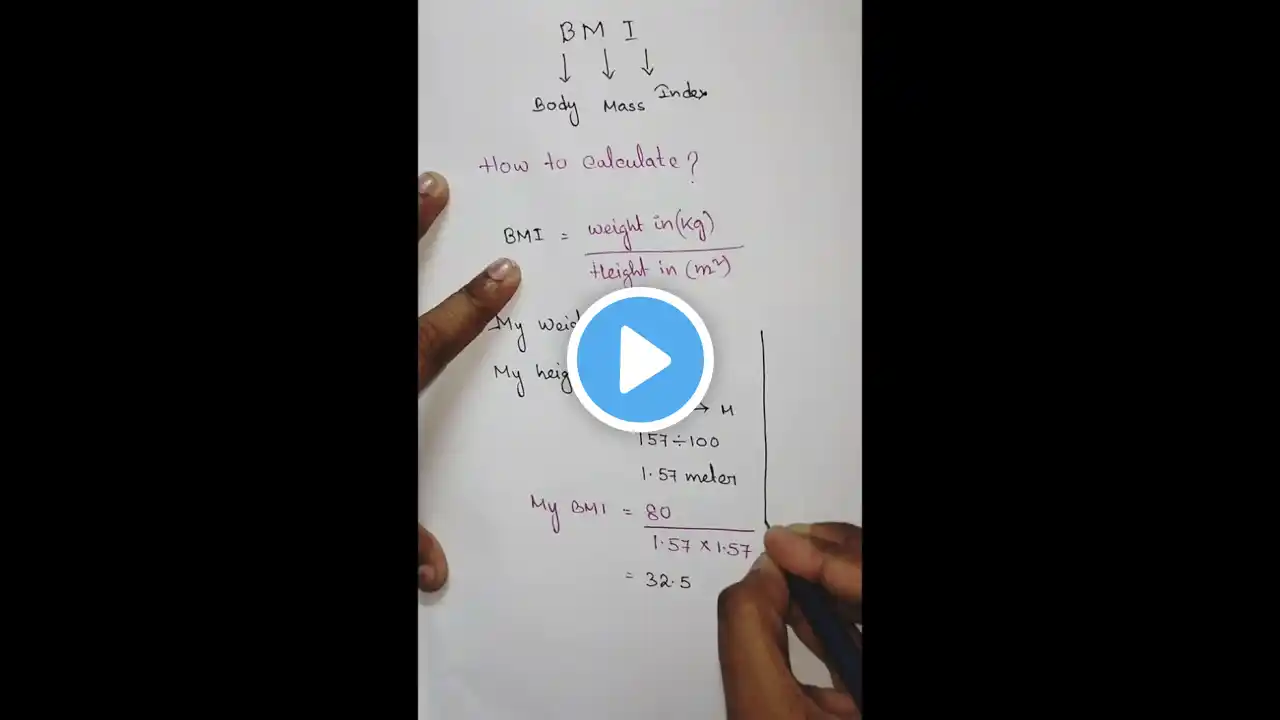 B M I
Body Mass Index
How to calculate?
BMI = weight in (kg)
Height in (m²)
My
My
→ M
157÷100
1.57 meter
My BMI = 80
1.57 × 1.57
= 32.5